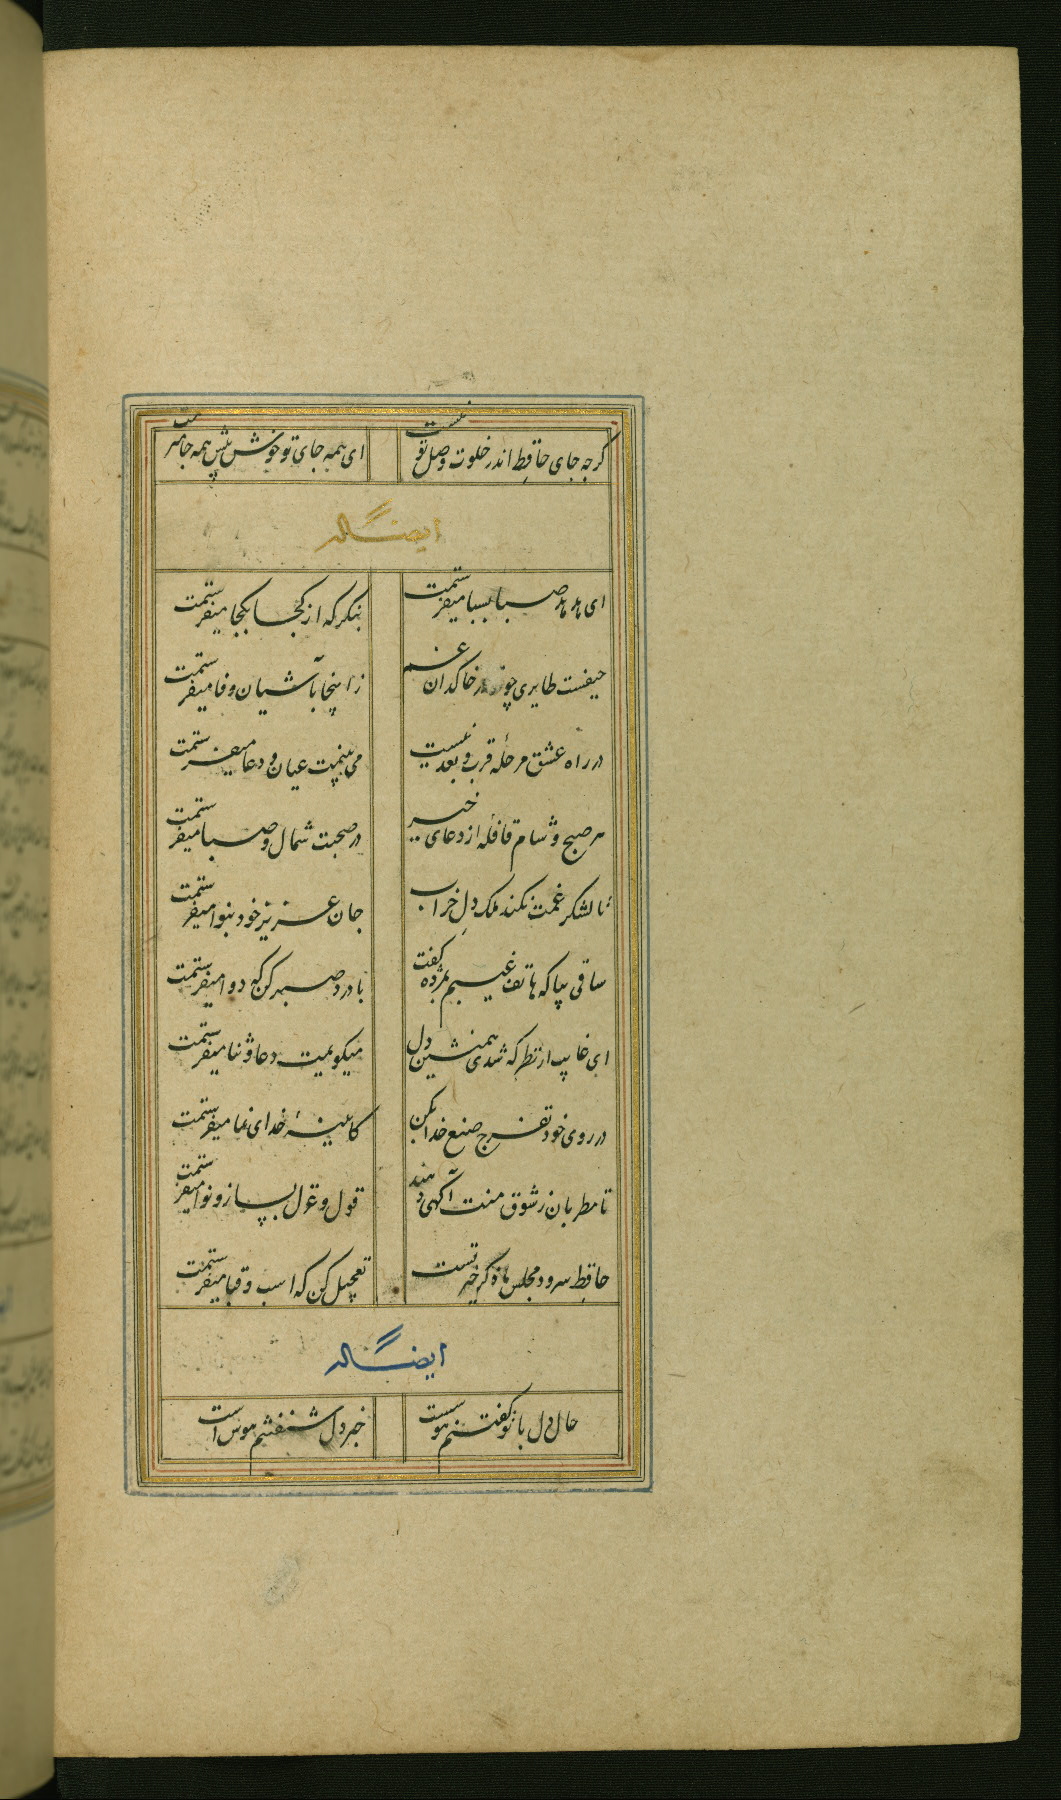 کرچه جای حافظ اندر خلوت وصل تو نیست ای همه جای تو خوش پیش همه جا
ایضا له
ای هدهد صبا بسبا میفرستمت بنکر که از کجا بکجا میفرستمت
حیفست طایری چو تو در خاکدان غم زاینجا بآشیان وفا میفرستمت
در راه عشق مرحلهٔ قرب و بعد نیست می بینمت عیان و دعا میفرستمت
هر صبح و شام قافلهٔ از دعای خیر در صحبت شمال و صبا میفرستمت
تا لشکر غمت نکند ملک دل خراب جان عزیز خود بنوا میفرستمت
ساقی بیا که هاتف غیبم بمژده کفت با درد صبر کن که دوا میفرستمت
ای غایب از نظر که شدی همنشین دل میکویمت دعا و ثنا میفرستمت
در روی خود تفرج صنع خدا بکن کایینهٔ خدای نما میفرستمت
تا مطربان ز شوق منت آکهی دهند قول و غزل بساز و نوا میفرستمت
حافظ سرود مجلس ما ذکر خیر تست تعجیل کن که اسب و قبا میفرستمت
ایضا له
حال دل با تو کفتنم هوسست خبر دل شنفتنم هوس است